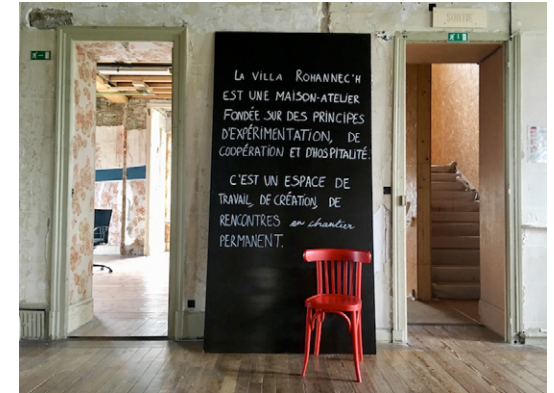 SORTIE
LA VILLA ROHANNEC'H
EST UNE MAISON-ATELIER
FONDÉE SUR DES PRINCIPES
D'EXPÉRIMENTATION, DE
COOPÉRATION ET D'HOSPITALITÉ.
C'EST UN ESPACE DE
TRAVAIL, DE CRÉATION, DE
RENCONTRES en chantier
PERMANENT.